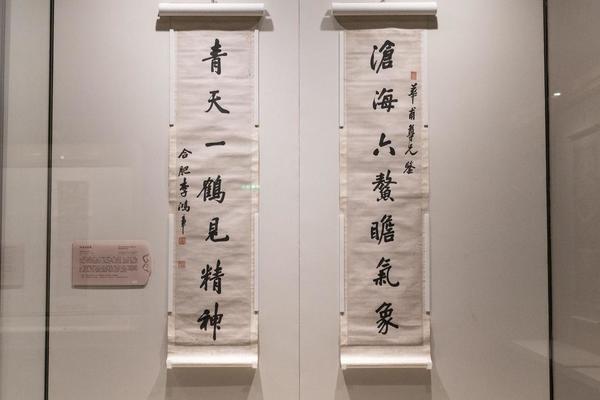 滄海六鰲瞻氣象
華甫尊兄鉴
青天一鶴見精神
合肥李鴻章